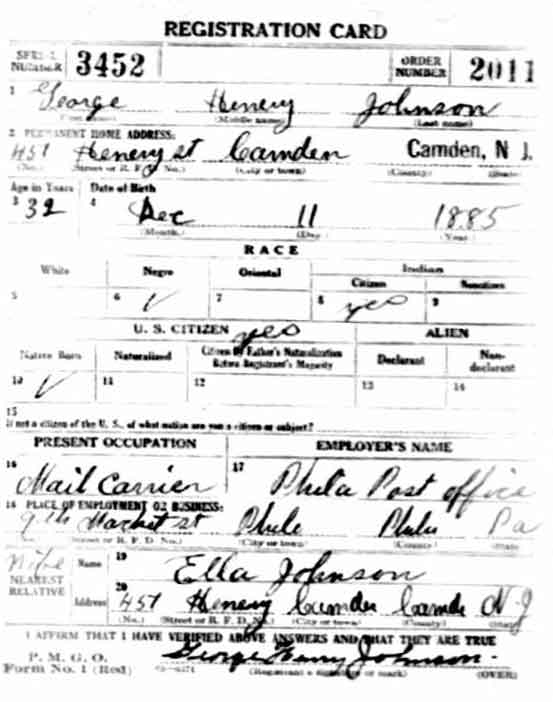 REGISTRATION CARD
SERIAL NUMBER 3452 ORDER NUMBER 2011
1 George Henery Johnson
(First name) (Middle name) (Last name)
2 PERMANENT HOME ADDRESS:
457 Henery st Camden Camden, N J.
(No.) (Street or R. F. D. No.) (City or town) (County) (State)
Age in Years Date of Birth
3 32 4 Dec 11 1885
(Month.) (Day.) (Year.)
RACE
White Negro Oriental Indian
Citizen Noncitizen
5 6 ✓ 7 8 yes 9
U. S. CITIZEN yes ALIEN
Native Born Naturalized Citizen By Father's Naturalization Before Registrant's Majority Declarant Non-declarant
10 ✓ 11 12 13 14
15
If not a citizen of the U. S., of what nation are you a citizen or subject?
PRESENT OCCUPATION EMPLOYER'S NAME
16 Mail Carrier 17 Phila Post office
18 PLACE OF EMPLOYMENT OR BUSINESS:
9th Market st Phila Phila Pa
(No.) (Street or R. F. D. No.) (City or town) (County) (State)
Wife Name 19 Ella Johnson
NEAREST RELATIVE
Address 20 457 Henery Camden Camde N-J
(No.) (Street or R. F. D. No.) (City or town) (County) (State)
I AFFIRM THAT I HAVE VERIFIED ABOVE ANSWERS AND THAT THEY ARE TRUE
P. M. G. O.
Form No. 1 (Red) George Henry Johnson.
(Registrant's signature or mark) (OVER)